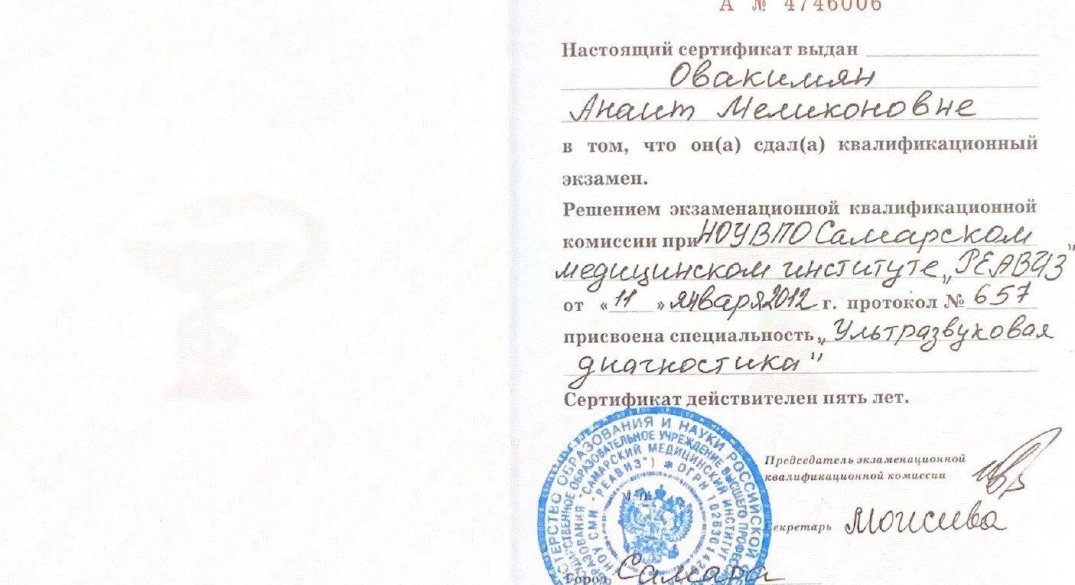 А № 4746006
Настоящий сертификат выдан
Овакимян
Анаит Меликоновне
в том, что он(а) сдал(а) квалификационный
экзамен.
Решением экзаменационной квалификационной
комиссии при НОУВПО Самарском
медицинском институте „РЕАВИЗ"
от « 11 » января 2012 г. протокол № 657
присвоена специальность „Ультразвуковая
диагностика"
Сертификат действителен пять лет.
Председатель экзаменационной
квалификационной комиссии
Секретарь Моисеева
Город Самара
ОБРАЗОВАНИЯ И НАУКИ РОССИЙСКОЙ
ОБРАЗОВАТЕЛЬНОЕ УЧРЕЖДЕНИЕ ВЫСШЕГО
"САМАРСКИЙ МЕДИЦИНСКИЙ ИНСТИТУТ
НОУ СМИ "РЕАВИЗ") * ОГРН